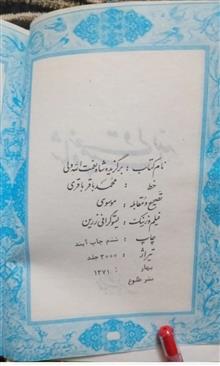 نام کتاب : برگزیده شاه نعمت الله ولی
خط : محمد باقر باقری
تصحیح و مقابله : موسوی
فیلم و زینک : لیتوگرافی زرین
چاپ : ششم چاپ آیند
تیراژ : ۳۰۰۰ جلد
بهار : ۱۳۷۱
نشر طلوع